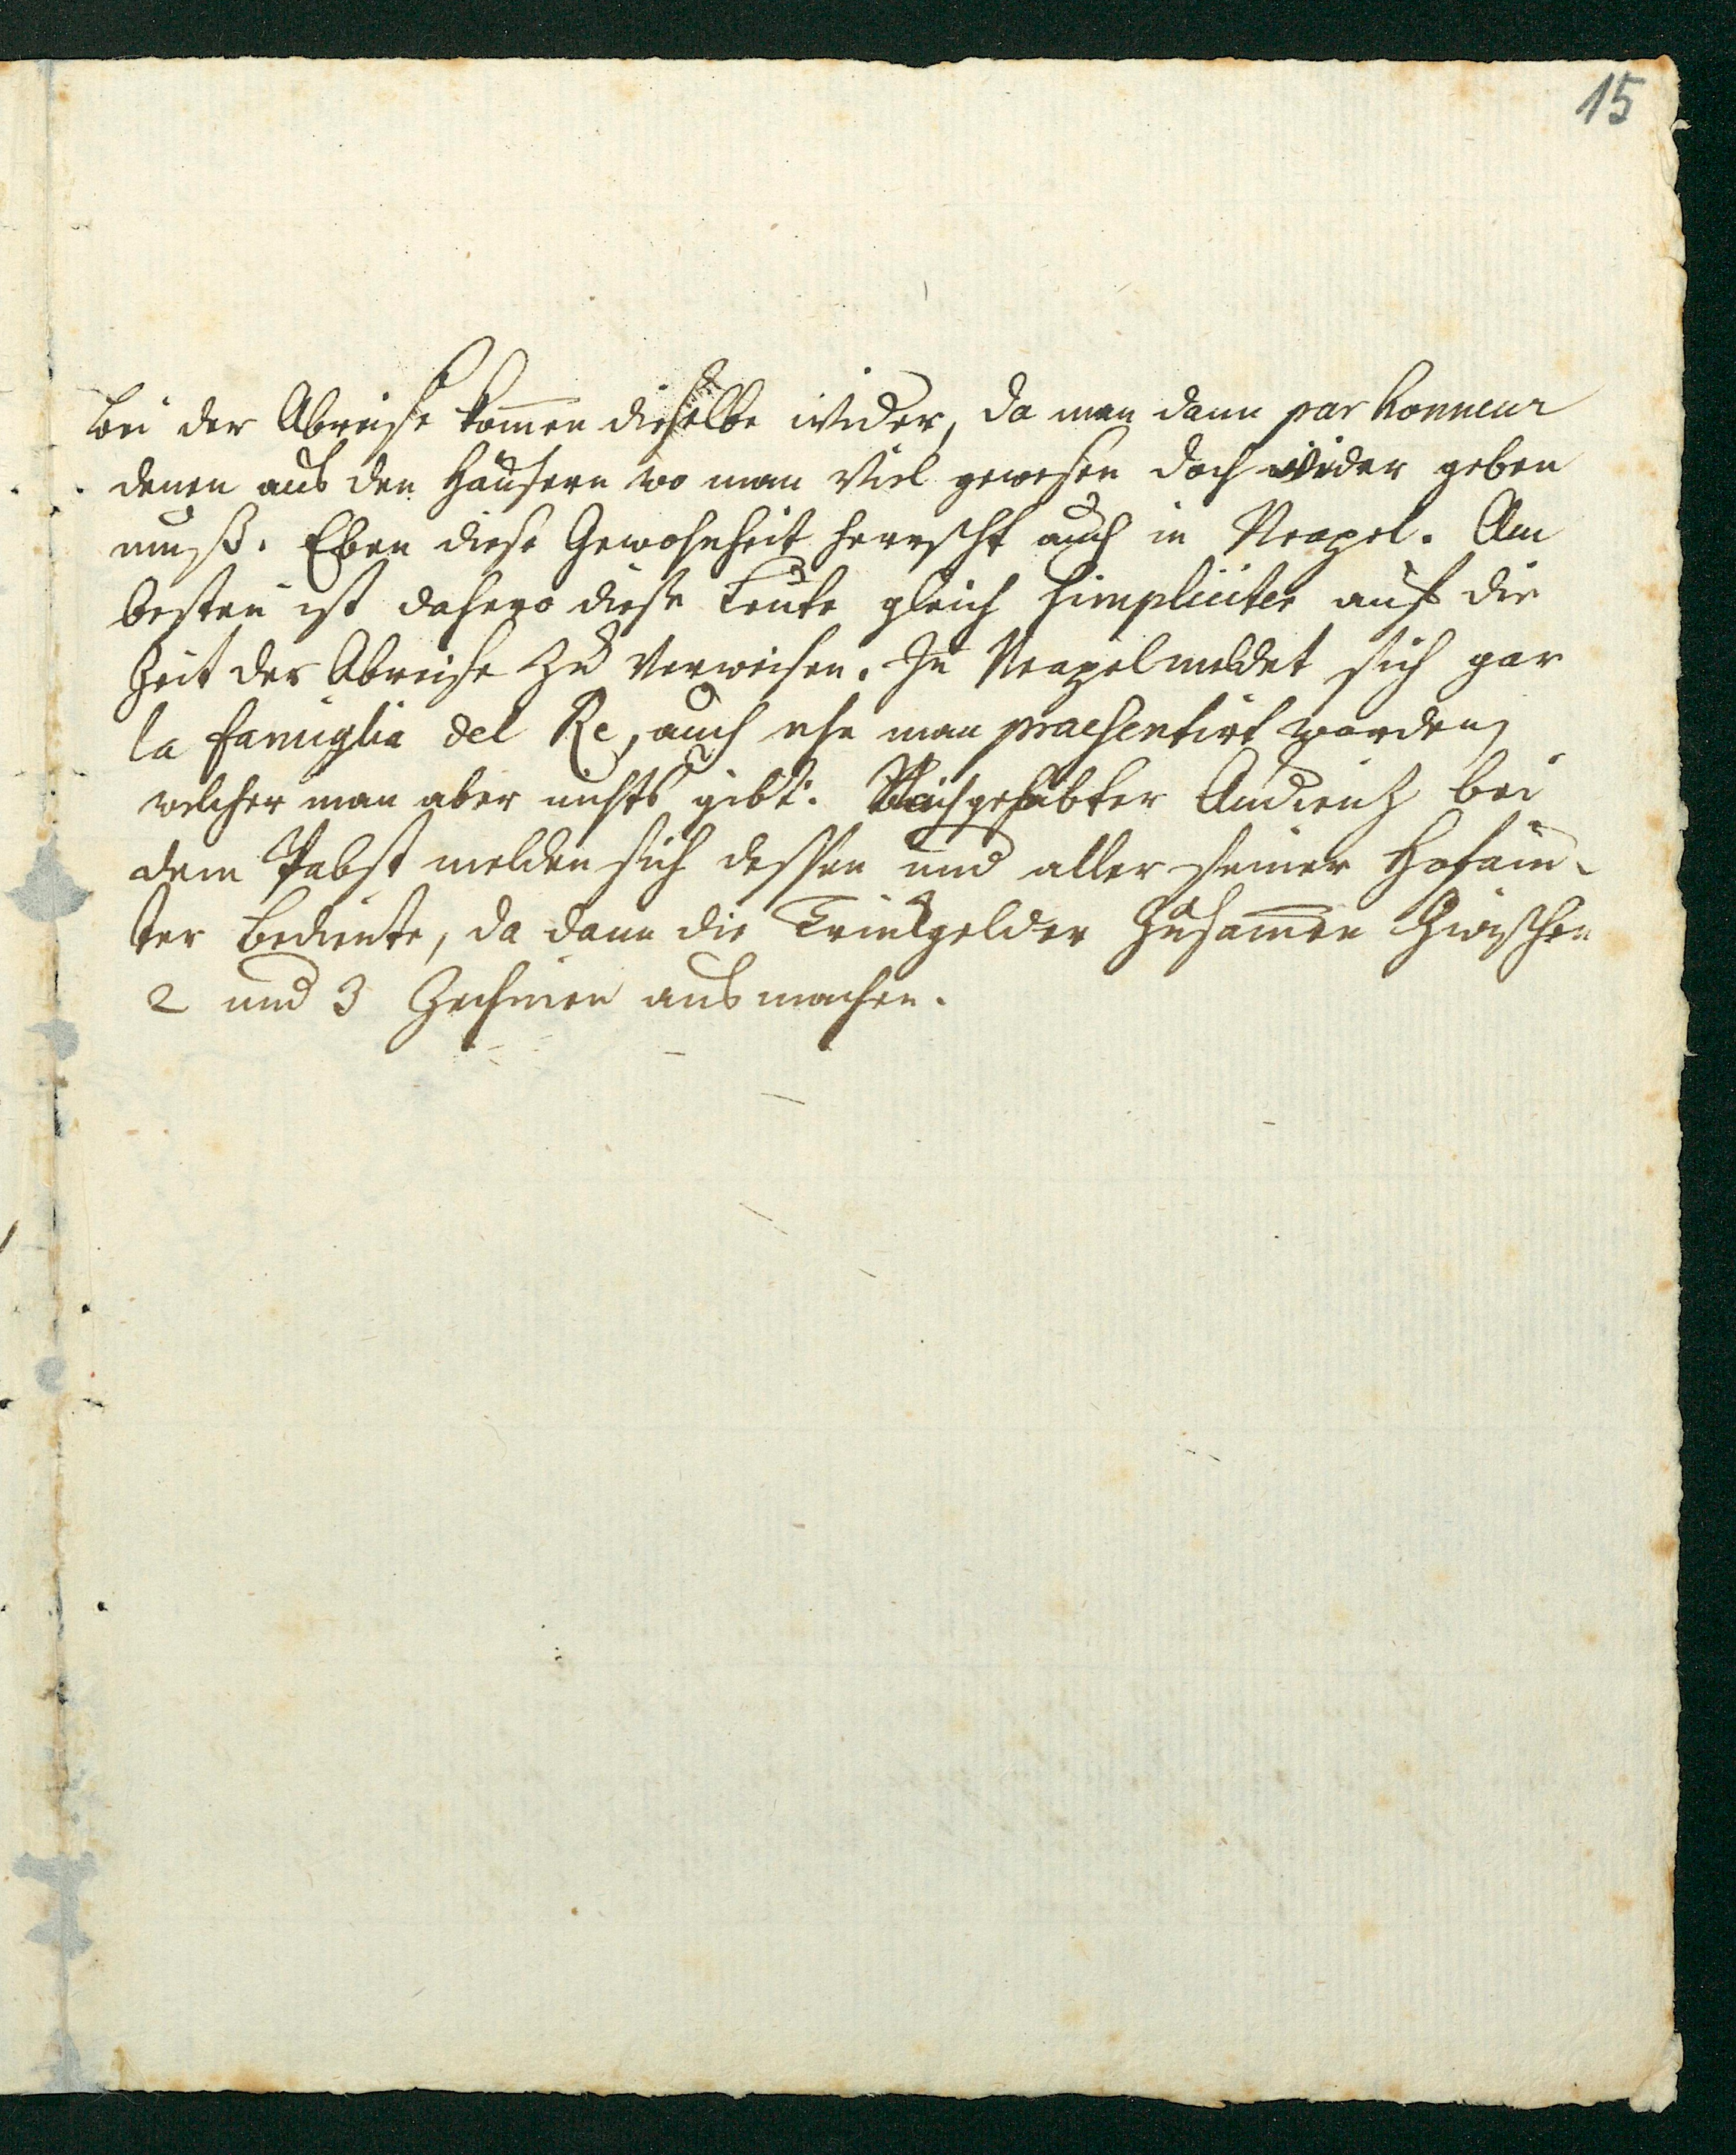 15
bei der Abreise kom̄en dieselbe wider, da man dann par honneur
denen aus den Häusern wo man viel gewesen doch wider geben
muß. Eben diese Gewohnheit herrscht auch in Neapel. Am
besten ist dahero diese Leute gleich simpliciter auf die
Zeit der Abreise zu verweisen. In Neapel meldet sich gar
la famiglia del Re, auch ehe man praesentirt worden,
welcher man aber nichts gibt. Nach gehabter Audienz bei
dem Pabst melden sich dessen und aller seiner Hofäm-
ter Bediente, da dann die Trinkgelder zusam̄en zwischen
2 und 3 Zechinen ausmachen.